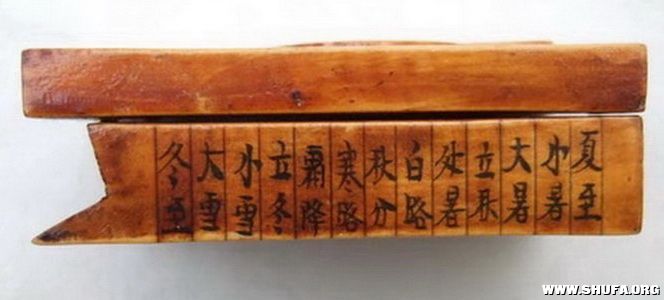 夏至
小暑
大暑
立秋
处暑
白路
秋分
寒路
霜降
立冬
小雪
大雪
冬至
WWW.SHUFA.ORG